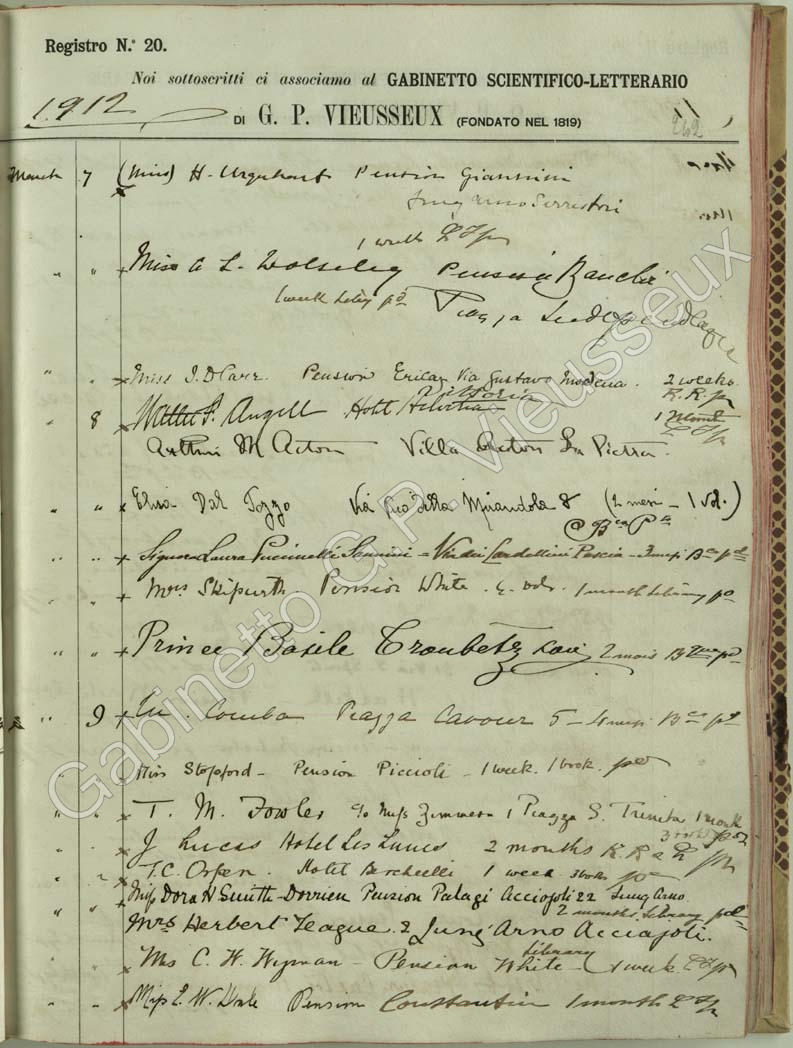 Registro N.° 20.
Noi sottoscritti ci associamo al GABINETTO SCIENTIFICO-LETTERARIO
1912 DI G. P. VIEUSSEUX (FONDATO NEL 1819)
262
March 7 (Miss) H. Urquhart Pension Giannini
Lung'arno Serristori
1 week
" " Miss A L. Wolseley Pension Banchi
1 week Library pd
Piazza Indipendenza
" " Miss I. D Carr. Pension Erica Via Gustavo Modena. 2 weeks.
R. R. p
Vittoria
8 Walter F. Angell Hotel Helvetia 1 Month
Arthur M Acton Villa Acton La Pietra.
" " Elisa Dal Pozzo Via Pico della Mirandola 8 (2 mesi - 1 vol.)
" " Signora Laura Puccinelli Sannini - Via dei Cardellini Pescia - 3 mesi
" " Mrs Skipwith Pension White. 4 vols. 1 month Library pd
" " Prince Basile Troubetzkoi 2 mois
" 9 Em. Comba Piazza Cavour 5 - 4 mesi
" Miss Stopford - Pension Piccioli - 1 week. 1 book. pd
" " T. M. Fowler c/o Miss Zimmern 1 Piazza S. Trinita 1 month
3 books
J Lucas Hotel 2 months R. R
" T. C. Orpen. Hotel Berchielli 1 week 3 books
" " Miss Dora H Smith-Dorrien Pension Palagi Acciajoli 22 Lung Arno.
2 months. Library pd
Mrs Herbert League. 2 Lung' Arno Acciajoli.
Library
" Mrs C. W. Wyman - Pension White - 1 week
" Miss E. W. Hale Pension Constantin 1 month
Gabinetto G. P. Vieusseux